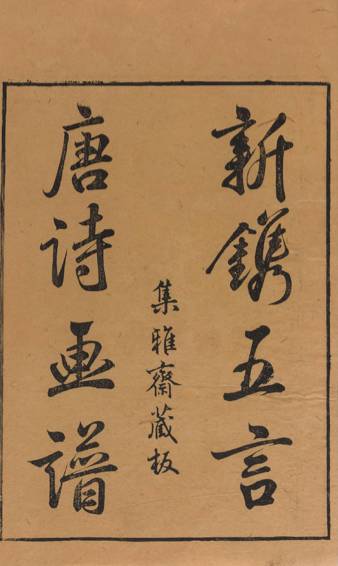 新鐫五言
集雅齋藏板
唐詩畫譜